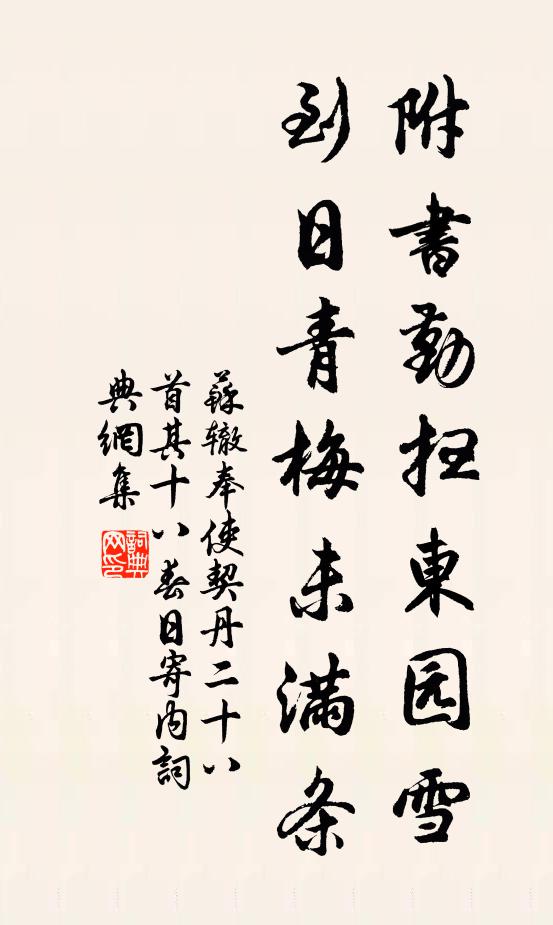 附書勤扫東园雪
到日青梅未满条
蘇辙奉使契丹二十八
首其十八春日寄内詞
典網集
詞典网印